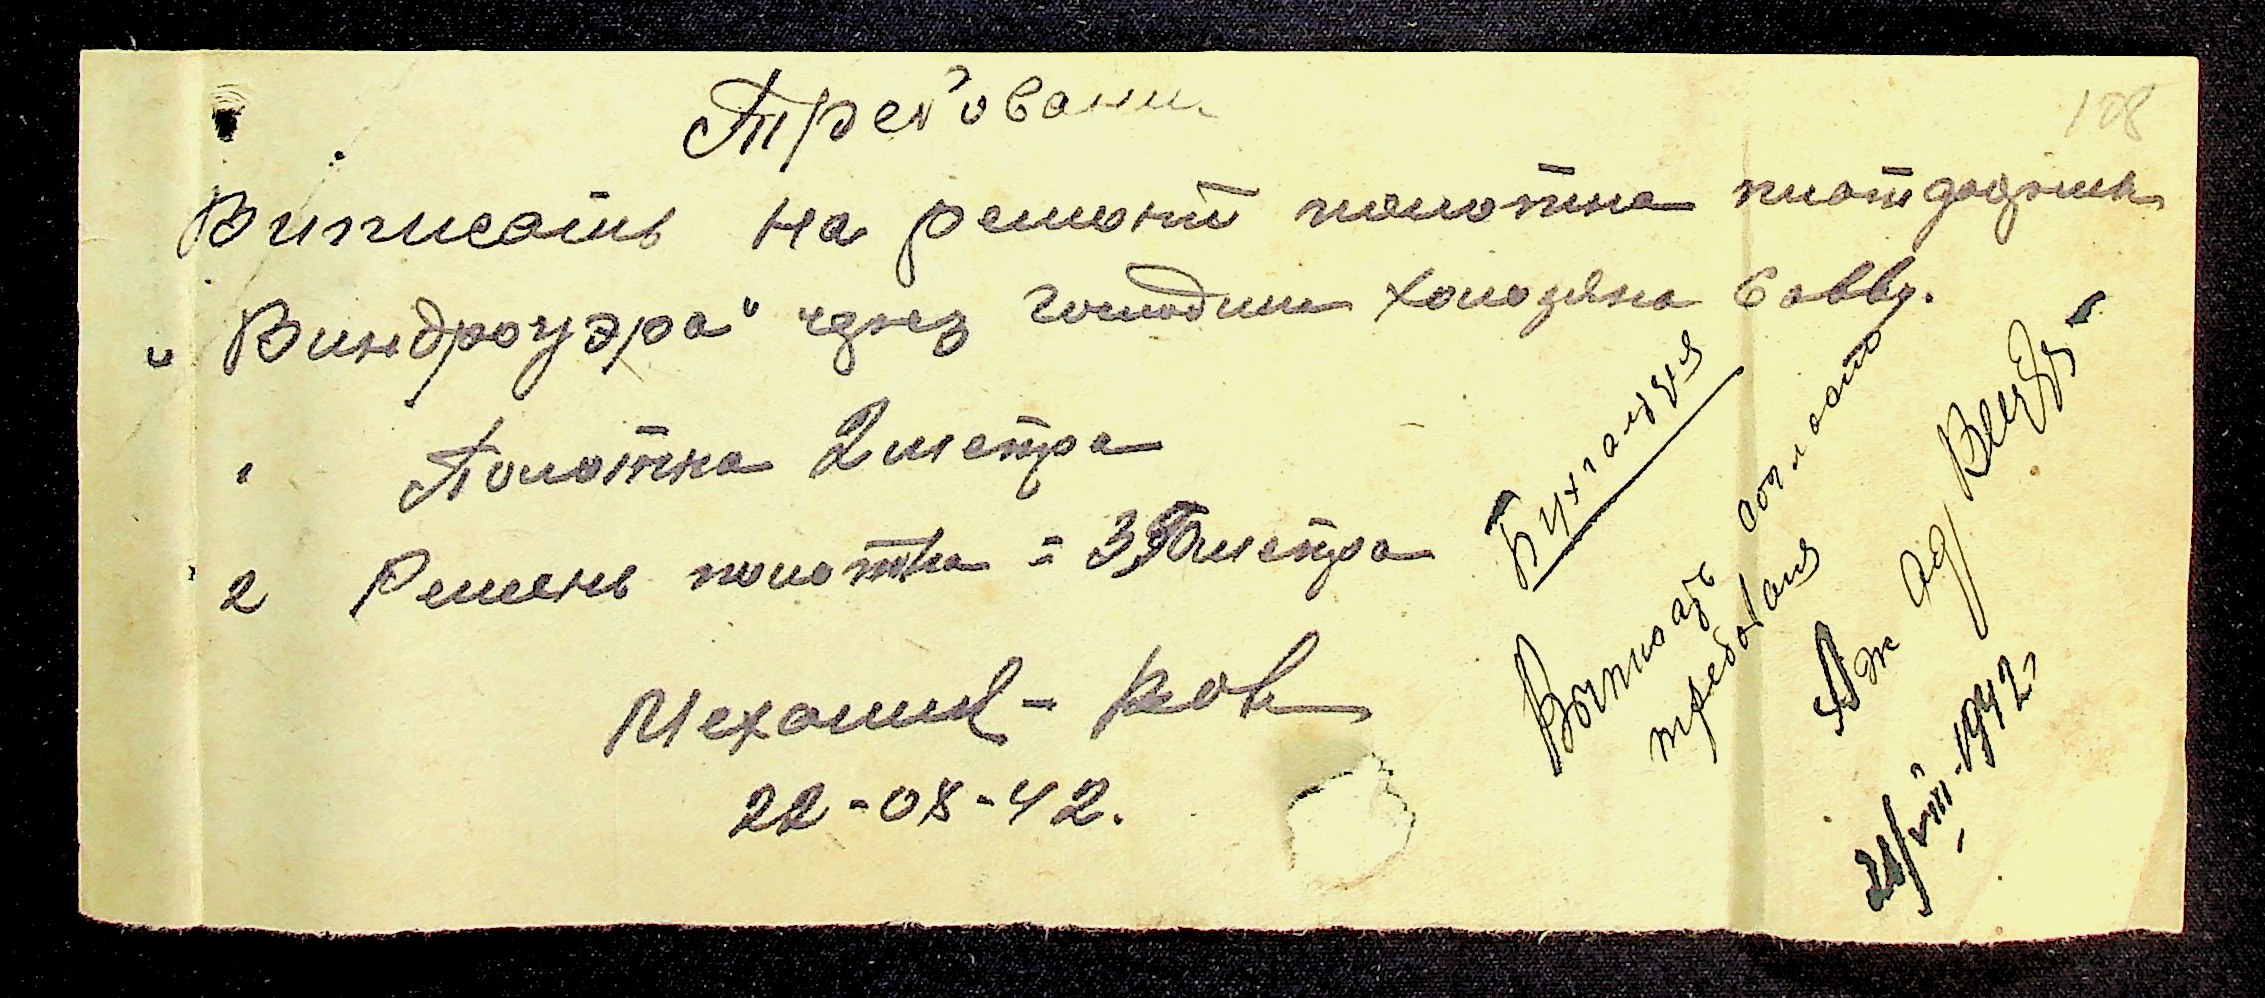 Требовани
108
Виписать на ремонт полотна
„Виндроуэра" через господина Холодяна Савву.
1 Полотна 2 метра
2 Ремень полотна = 3 метра
Механик -
22-08-42.
Бухгалтерия
Выписать согласно
требования
1942